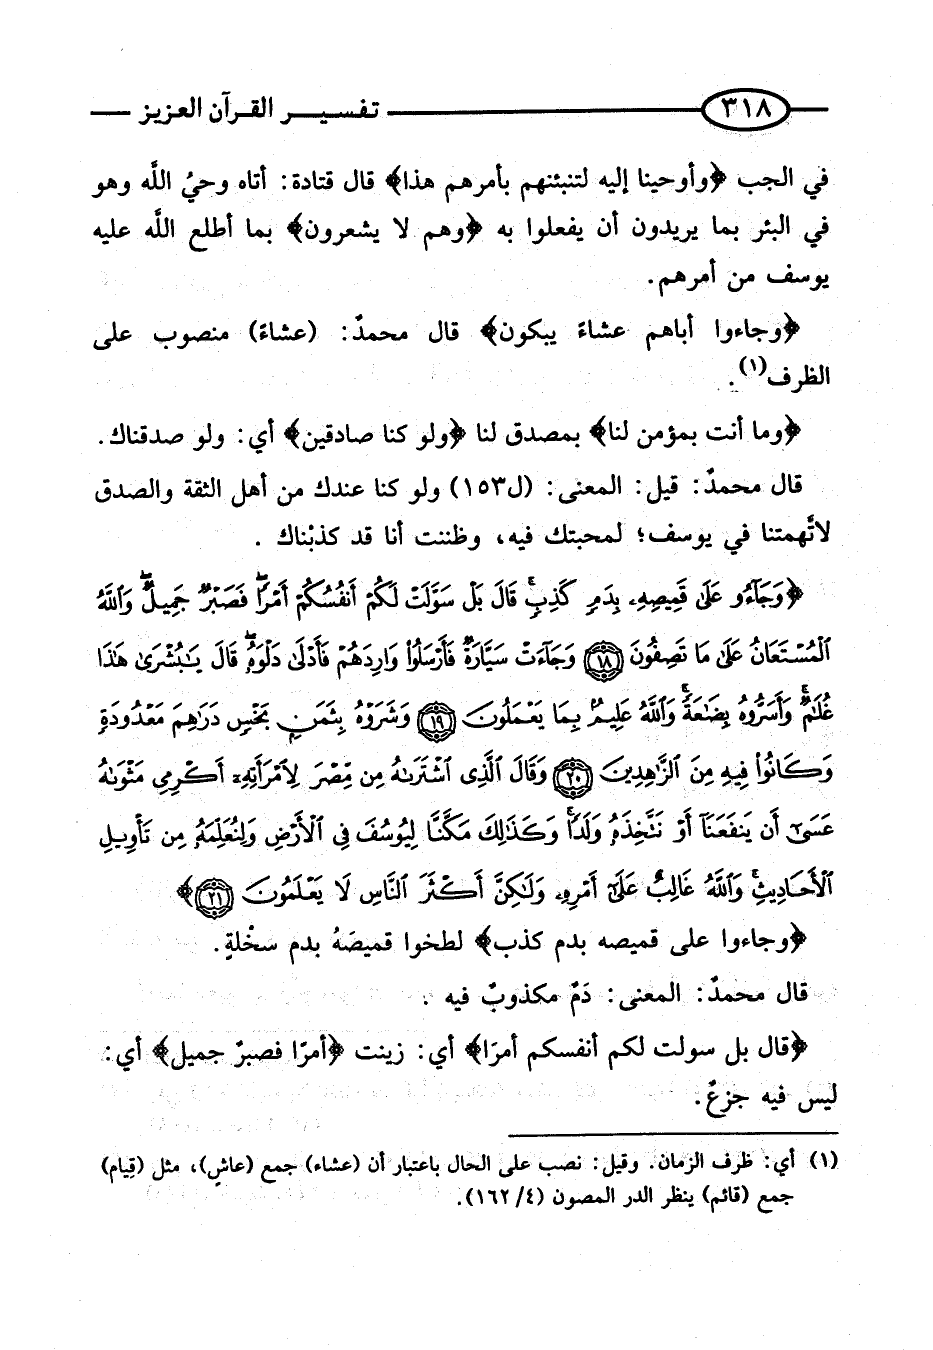 ٣١٨ تفسير القرآن العزيز
في الجب ﴿وأوحينا إليه لتنبئنهم بأمرهم هذا﴾ قال قتادة: أتاه وحيُ اللَّه وهو
في البئر بما يريدون أن يفعلوا به ﴿وهم لا يشعرون﴾ بما أطلع اللَّه عليه
يوسف من أمرهم.
﴿وجاءوا أباهم عشاءً يبكون﴾ قال محمدٌ: (عشاءً) منصوب على
الظرف(١).
﴿وما أنت بمؤمن لنا﴾ بمصدق لنا ﴿ولو كنا صادقين﴾ أي: ولو صدقناك.
قال محمدٌ: قيل: المعنى: (ل١٥٣) ولو كنا عندك من أهل الثقة والصدق
لاتَّهمتنا في يوسف؛ لمحبتك فيه، وظننت أنا قد كذبْناك .
﴿وَجَآءُو عَلَىٰ قَمِيصِهِۦ بِدَمٍ كَذِبٍۚ قَالَ بَلْ سَوَّلَتْ لَكُمْ أَنفُسُكُمْ أَمْرًاۖ فَصَبْرٌ جَمِيلٌۖ وَٱللَّهُ
ٱلْمُسْتَعَانُ عَلَىٰ مَا تَصِفُونَ ١٨ وَجَآءَتْ سَيَّارَةٌ فَأَرْسَلُوا۟ وَارِدَهُمْ فَأَدْلَىٰ دَلْوَهُۥۖ قَالَ يَـٰبُشْرَىٰ هَـٰذَا
غُلَـٰمٌۚ وَأَسَرُّوهُ بِضَـٰعَةًۚ وَٱللَّهُ عَلِيمٌۢ بِمَا يَعْمَلُونَ ١٩ وَشَرَوْهُ بِثَمَنٍۭ بَخْسٍ دَرَٰهِمَ مَعْدُودَةٍ
وَكَانُوا۟ فِيهِ مِنَ ٱلزَّٰهِدِينَ ٢٠ وَقَالَ ٱلَّذِى ٱشْتَرَىٰهُ مِن مِّصْرَ لِٱمْرَأَتِهِۦٓ أَكْرِمِى مَثْوَىٰهُ
عَسَىٰٓ أَن يَنفَعَنَآ أَوْ نَتَّخِذَهُۥ وَلَدًاۚ وَكَذَٰلِكَ مَكَّنَّا لِيُوسُفَ فِى ٱلْأَرْضِ وَلِنُعَلِّمَهُۥ مِن تَأْوِيلِ
ٱلْأَحَادِيثِۚ وَٱللَّهُ غَالِبٌ عَلَىٰٓ أَمْرِهِۦ وَلَـٰكِنَّ أَكْثَرَ ٱلنَّاسِ لَا يَعْلَمُونَ ٢١﴾
﴿وجاءوا على قميصه بدم كذب﴾ لطخوا قميصَهُ بدم سخْلةٍ.
قال محمدٌ: المعنى: دَمٌ مكذوبٌ فيه .
﴿قال بل سولت لكم أنفسكم أمرًا﴾ أي: زينت ﴿أمرًا فصبرٌ جميل﴾ أي:
ليس فيه جزعٌ.
(١) أي: ظرف الزمان. وقيل: نصب على الحال باعتبار أن (عشاء) جمع (عاشٍ)، مثل (قِيام)
جمع (قائم) ينظر الدر المصون (٤/ ١٦٢).